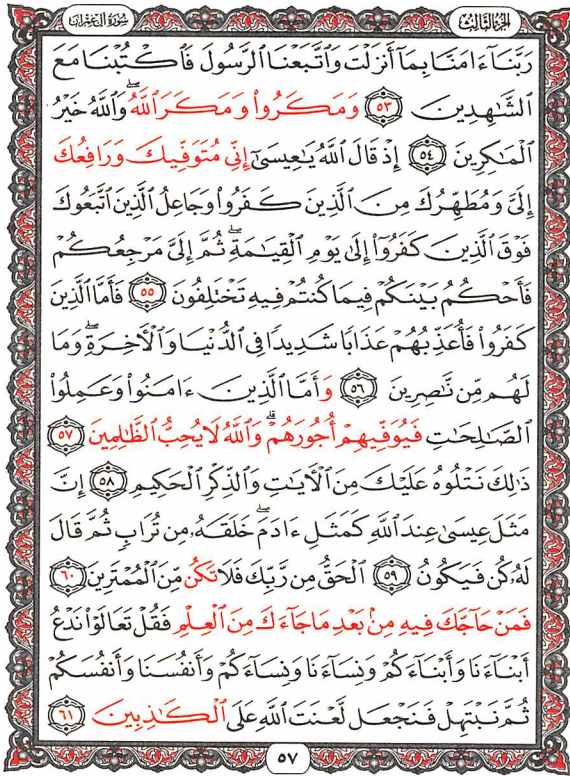 الجزء الثالث
سورة آل عمران
رَبَّنَآ ءَامَنَّا بِمَآ أَنزَلْتَ وَٱتَّبَعْنَا ٱلرَّسُولَ فَٱكْتُبْنَا مَعَ
ٱلشَّٰهِدِينَ ٥٣ وَمَكَرُوا۟ وَمَكَرَ ٱللَّهُ ۖ وَٱللَّهُ خَيْرُ
ٱلْمَٰكِرِينَ ٥٤ إِذْ قَالَ ٱللَّهُ يَٰعِيسَىٰٓ إِنِّى مُتَوَفِّيكَ وَرَافِعُكَ
إِلَىَّ وَمُطَهِّرُكَ مِنَ ٱلَّذِينَ كَفَرُوا۟ وَجَاعِلُ ٱلَّذِينَ ٱتَّبَعُوكَ
فَوْقَ ٱلَّذِينَ كَفَرُوٓا۟ إِلَىٰ يَوْمِ ٱلْقِيَٰمَةِ ۖ ثُمَّ إِلَىَّ مَرْجِعُكُمْ
فَأَحْكُمُ بَيْنَكُمْ فِيمَا كُنتُمْ فِيهِ تَخْتَلِفُونَ ٥٥ فَأَمَّا ٱلَّذِينَ
كَفَرُوا۟ فَأُعَذِّبُهُمْ عَذَابًا شَدِيدًا فِى ٱلدُّنْيَا وَٱلْءَاخِرَةِ ۖ وَمَا
لَهُم مِّن نَّٰصِرِينَ ٥٦ وَأَمَّا ٱلَّذِينَ ءَامَنُوا۟ وَعَمِلُوا۟
ٱلصَّٰلِحَٰتِ فَيُوَفِّيهِمْ أُجُورَهُمْ ۗ وَٱللَّهُ لَا يُحِبُّ ٱلظَّٰلِمِينَ ٥٧
ذَٰلِكَ نَتْلُوهُ عَلَيْكَ مِنَ ٱلْءَايَٰتِ وَٱلذِّكْرِ ٱلْحَكِيمِ ٥٨ إِنَّ
مَثَلَ عِيسَىٰ عِندَ ٱللَّهِ كَمَثَلِ ءَادَمَ ۖ خَلَقَهُۥ مِن تُرَابٍ ثُمَّ قَالَ
لَهُۥ كُن فَيَكُونُ ٥٩ ٱلْحَقُّ مِن رَّبِّكَ فَلَا تَكُن مِّنَ ٱلْمُمْتَرِينَ ٦٠
فَمَنْ حَآجَّكَ فِيهِ مِنۢ بَعْدِ مَا جَآءَكَ مِنَ ٱلْعِلْمِ فَقُلْ تَعَالَوْا۟ نَدْعُ
أَبْنَآءَنَا وَأَبْنَآءَكُمْ وَنِسَآءَنَا وَنِسَآءَكُمْ وَأَنفُسَنَا وَأَنفُسَكُمْ
ثُمَّ نَبْتَهِلْ فَنَجْعَل لَّعْنَتَ ٱللَّهِ عَلَى ٱلْكَٰذِبِينَ ٦١
٥٧